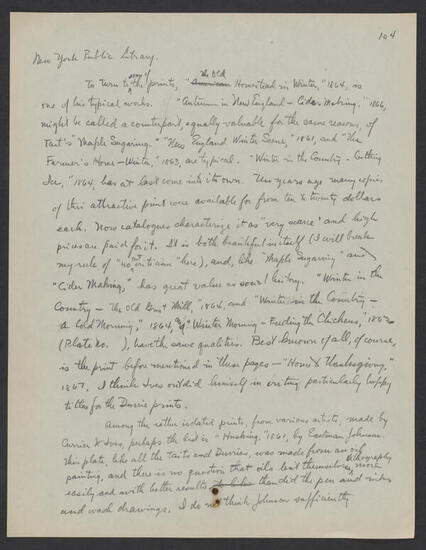 104
New York Public Library.
To turn to some of the prints, "The Old American Homestead in Winter," 1864, is
one of his typical works. "Autumn in New England – Cider Making," 1866,
might be called a counterpart, equally valuable for the same reasons, of
Tait's "Maple Sugaring." "New England Winter Scene," 1861, and "The
Farmer's Home – Winter," 1863, are typical. "Winter in the Country – Getting
Ice," 1864, has at last come into its own. Ten years ago many copies
of this attractive print were available for from ten to twenty dollars
each. Now catalogues characterize it as "very scarce" and high
prices are paid for it. It is both beautiful in itself (I will break
my rule of "no art criticism" here), and, like "Maple Sugaring" and
"Cider Making," has great value as social history. "Winter in the
Country – The Old Grist Mill," 1864, and "Winter in the Country –
A Cold Morning," 1864, of "Winter Morning – Feeding the Chickens," 1863
(Plate No. ), have the same qualities. Best known of all, of course,
is the print before mentioned in these pages – "Home to Thanksgiving,"
1867. I think Ives outdid himself in creating particularly happy
titles for the Durrie prints.
Among the rather isolated prints, from various artists, made by
Currier & Ives, perhaps the best is "Husking," 1861, by Eastman Johnson.
This plate, like all the Taits and Durries, was made from an oil
painting, and there is no question that oils lent themselves to lithography more
easily and with better results than did the pen and ink
and wash drawings. I do not think Johnson sufficiently